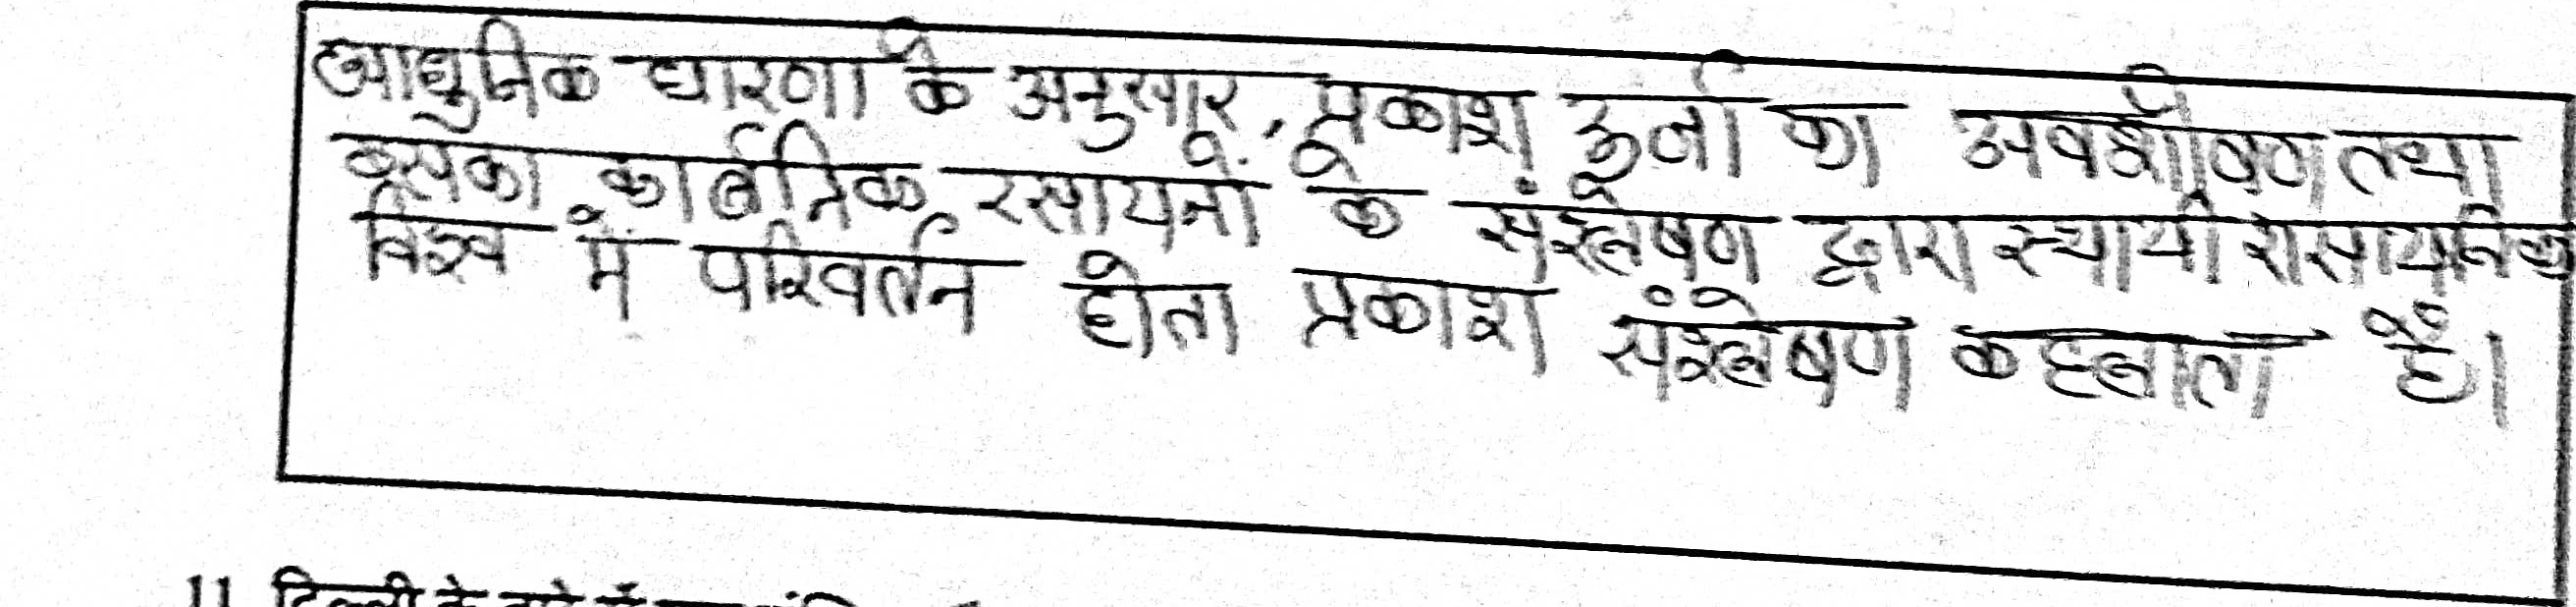 आधुनिक धारणा के अनुसार, प्रकाश ऊर्जा का अवशोषण तथा
इसका कार्बनिक रसायनों के संश्लेषण द्वारा स्थायी रासायनिक
विश्व में परिवर्तन होता प्रकाश संश्लेषण कहलाता है।
11 दिल्ली के बारे में